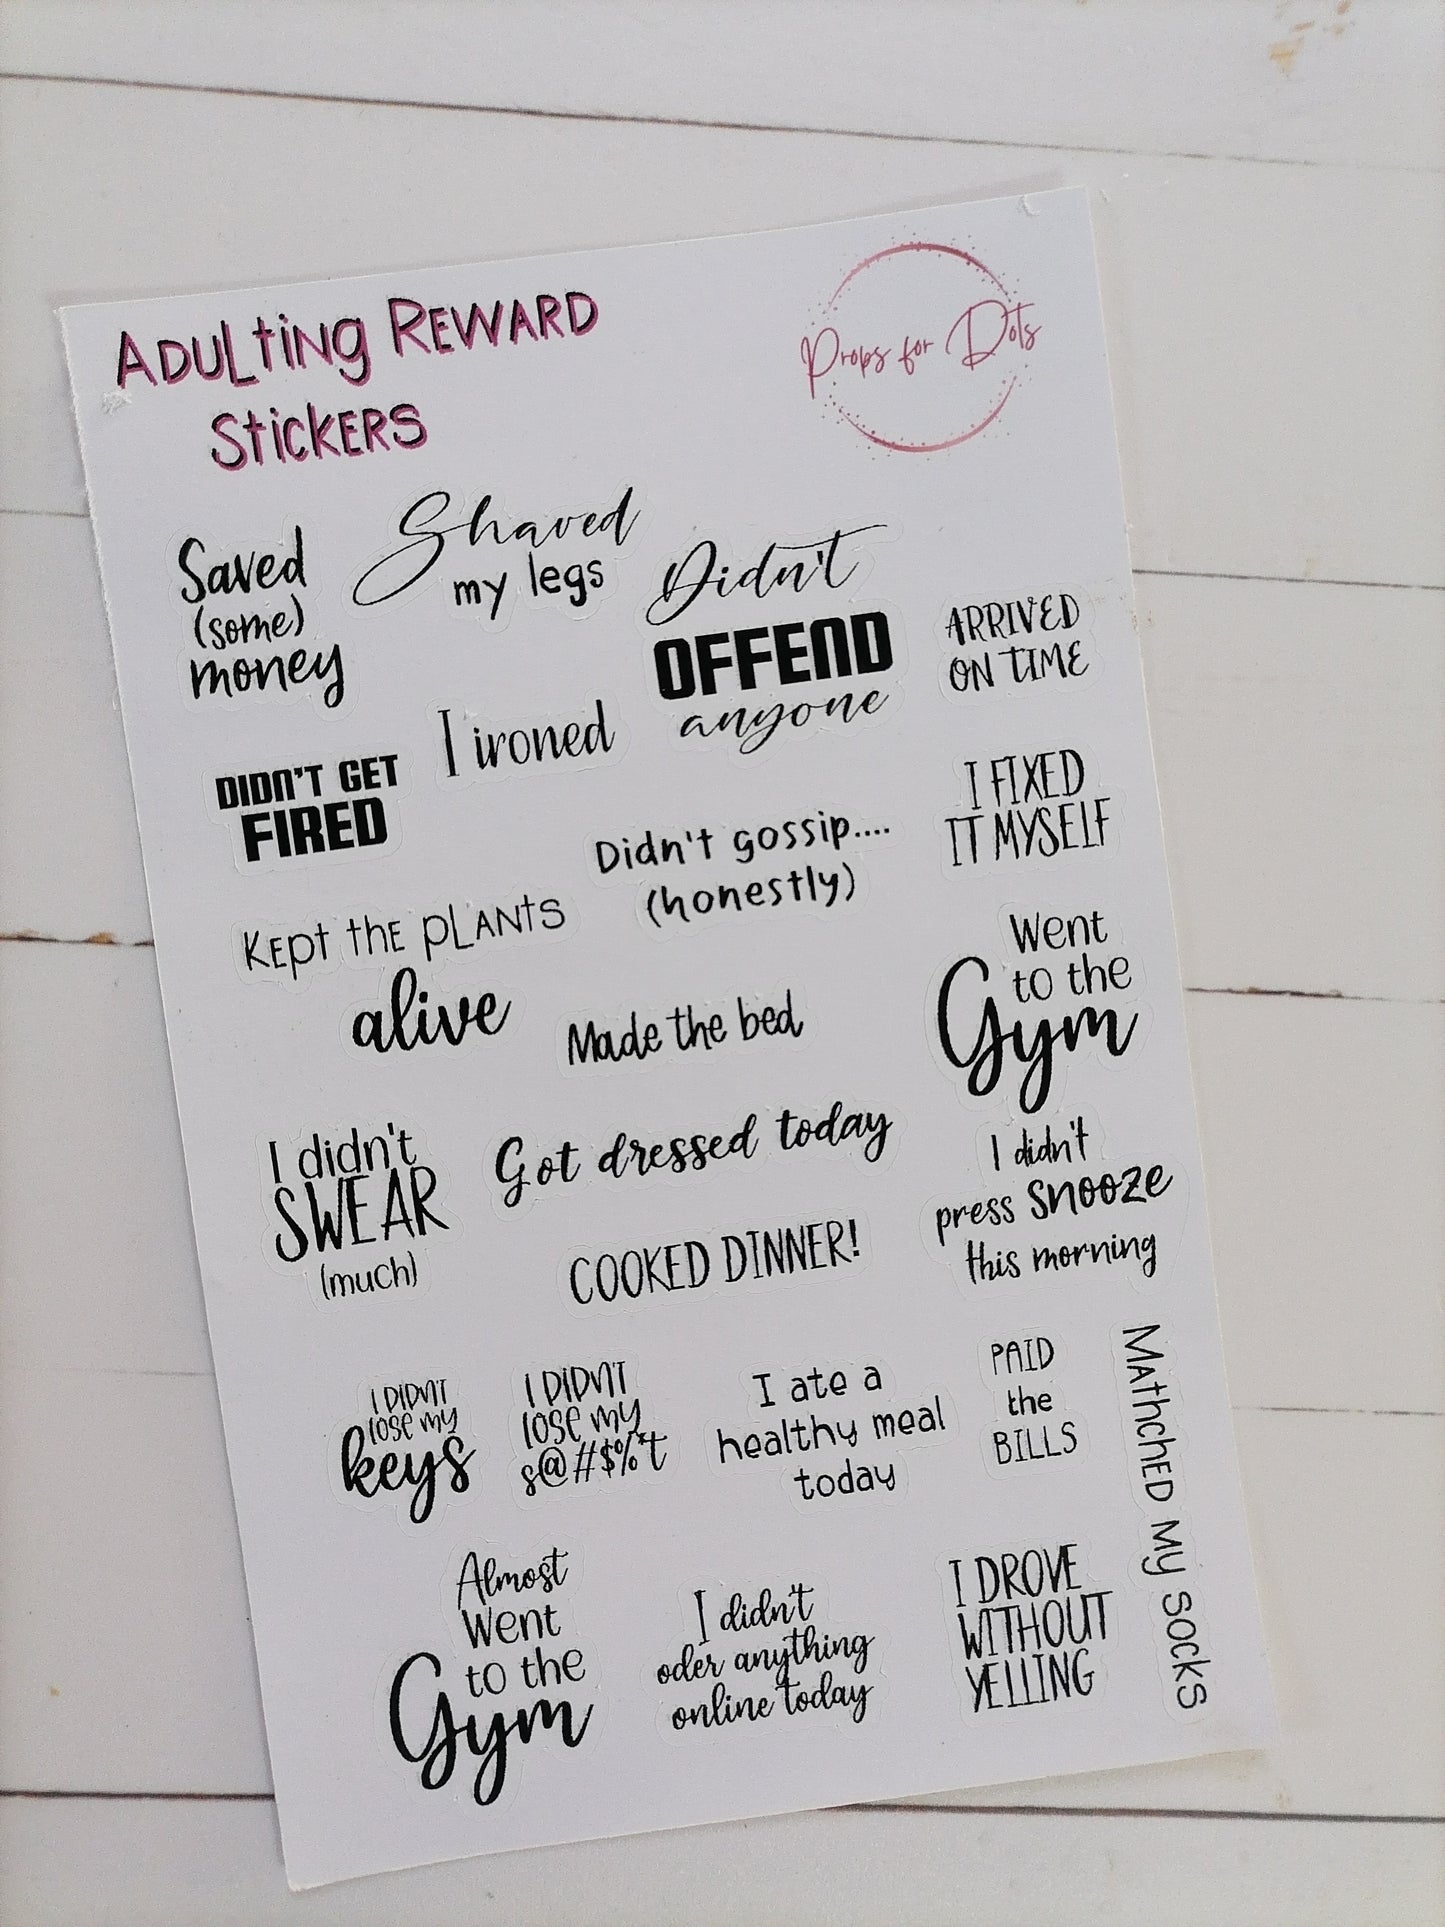 ADULTING REWARD
STICKERS
Props for Dots
Saved
(some)
money
Shaved
my legs
Didn't
OFFEND
anyone
ARRIVED
ON TIME
DIDN'T GET
FIRED
I ironed
Didn't gossip....
(honestly)
I FIXED
IT MYSELF
KEPT THE PLANTS
alive
Made the bed
Went
to the
Gym
I didn't
SWEAR
(much)
Got dressed today
COOKED DINNER!
I didn't
press SNOOZE
this morning
I DIDN'T
lose my
keys
I DIDN'T
lose my
s@#$%*t
I ate a
healthy meal
today
PAID
the
BILLS
MATHCHED MY SOCKS
Almost
Went
to the
Gym
I didn't
oder anything
online today
I DROVE
WITHOUT
YELLING